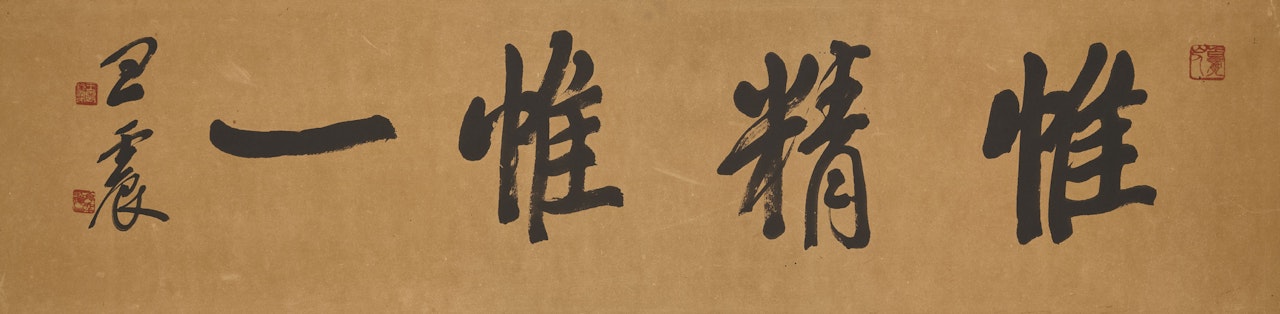 惟精惟一
王震